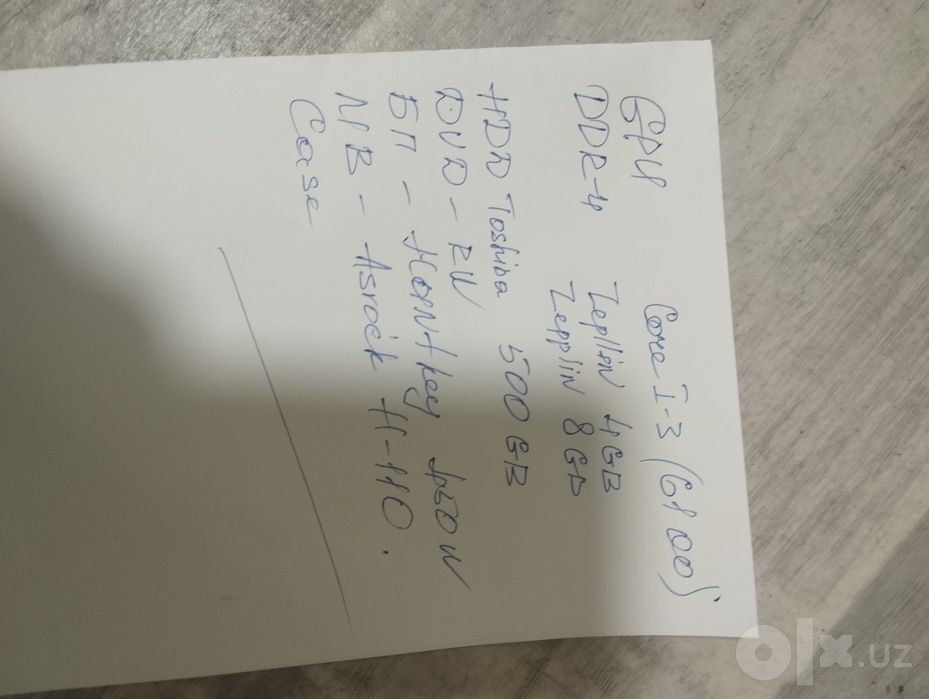 CPU Core I-3 (6100)
DDR-4 Zepllin 4GB
Zepplin 8GB
HDD Toshiba 500GB
DVD-RW
БП - 450W
MB - Asrock H-110.
Case
olx.uz